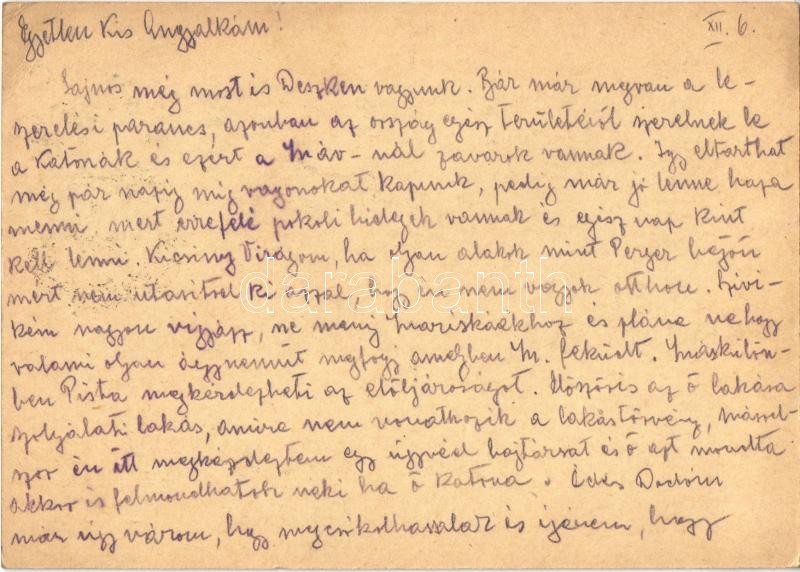 Egyetlen Kis Angyalkám! XII. 6.
Sajnos még most is Deszken vagyunk. Bár már megvan a le-
szerelési parancs, azonban az ország egész területéről szerelnek le
a Katonák és ezért a Máv-nál zavarok vannak. Így eltarthat
még pár napig míg vagonokat kapunk, pedig már jó lenne haza
menni, mert errefelé pokoli hidegek vannak és egész nap kint
kell lenni. Kicsiny Virágom, ha olyan alakok mint Perger bejön
mert nem utasítod ki azzal, hogy én nem vagyok otthon. Szivi-
kém nagyon vigyázz, ne menj Mariskáékhoz és pláne nehogy
valami olyan ágyneműt megfogj amelyben M. feküdt. Máskülön-
ben Pista megkérdezheti az elöljáróságot. Először is az ő lakása
szolgálati lakás, amire nem vonatkozik a lakástörvény, másod-
szor én itt megkérdeztem egy ügyvéd bajtársat és ő azt mondta
akkor is felmondhatok neki ha ő Katona. Édes Dodóm
már úgy várom, hogy megcsókolhassalak és ígérem, hogy
darabanth